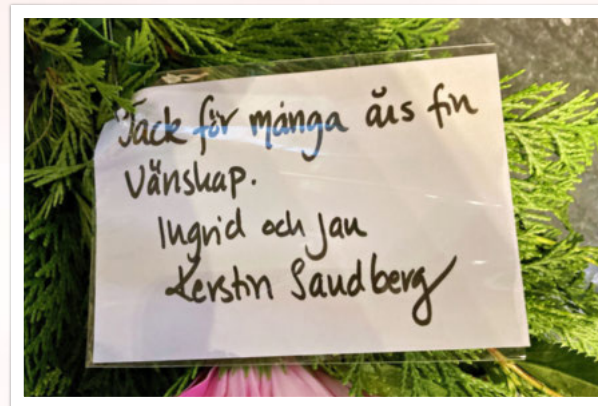 Tack för många års fin
Vänskap.
Ingrid och Jan
Kerstin Sandberg